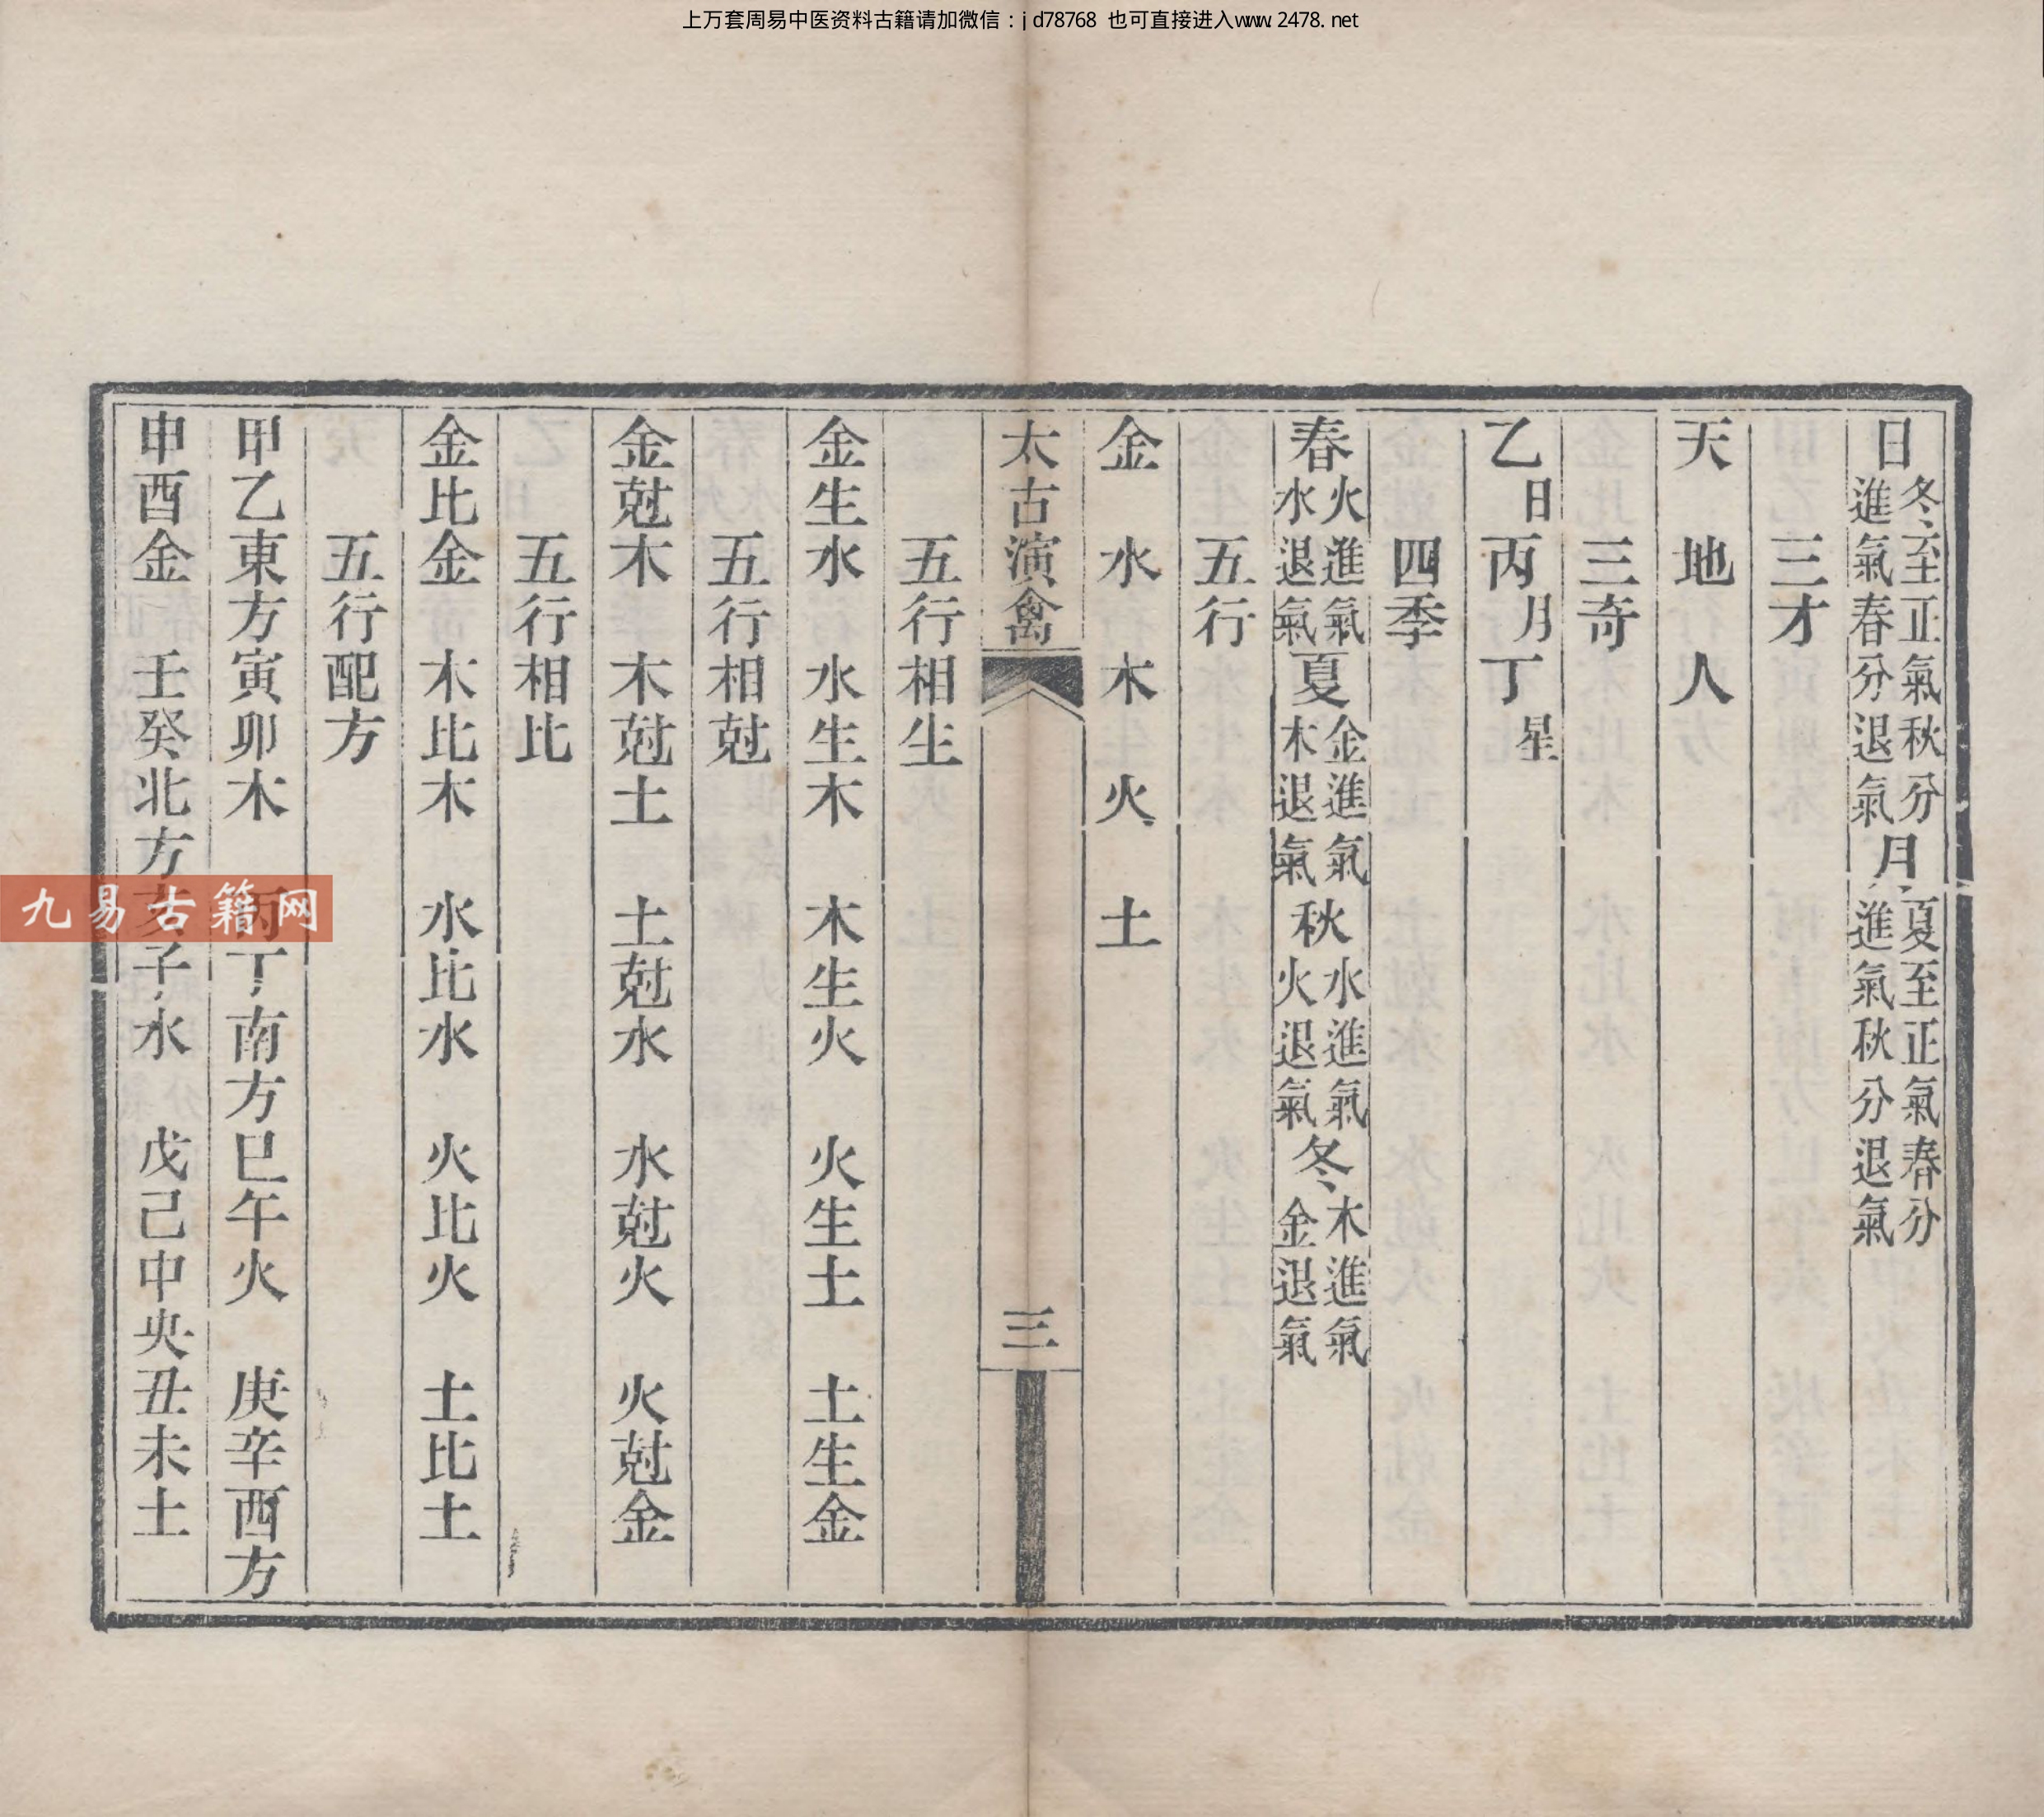 上万套周易中医资料古籍请加微信：jd78768 也可直接进入www.2478.net
日冬至正氣秋分進氣春分退氣月夏至正氣春分進氣秋分退氣
三才
天 地 人
三奇
乙日丙月丁星
四季
春火進氣水退氣夏金進氣木退氣秋水進氣火退氣冬木進氣金退氣
五行
金 水 木 火 土
太古演禽 三
五行相生
金生水 水生木 木生火 火生土 土生金
五行相尅
金尅木 木尅土 土尅水 水尅火 火尅金
五行相比
金比金 木比木 水比水 火比火 土比土
五行配方
甲乙東方寅卯木 丙丁南方巳午火 庚辛西方
申酉金 壬癸北方亥子水 戊己中央丑未土
九易古籍网